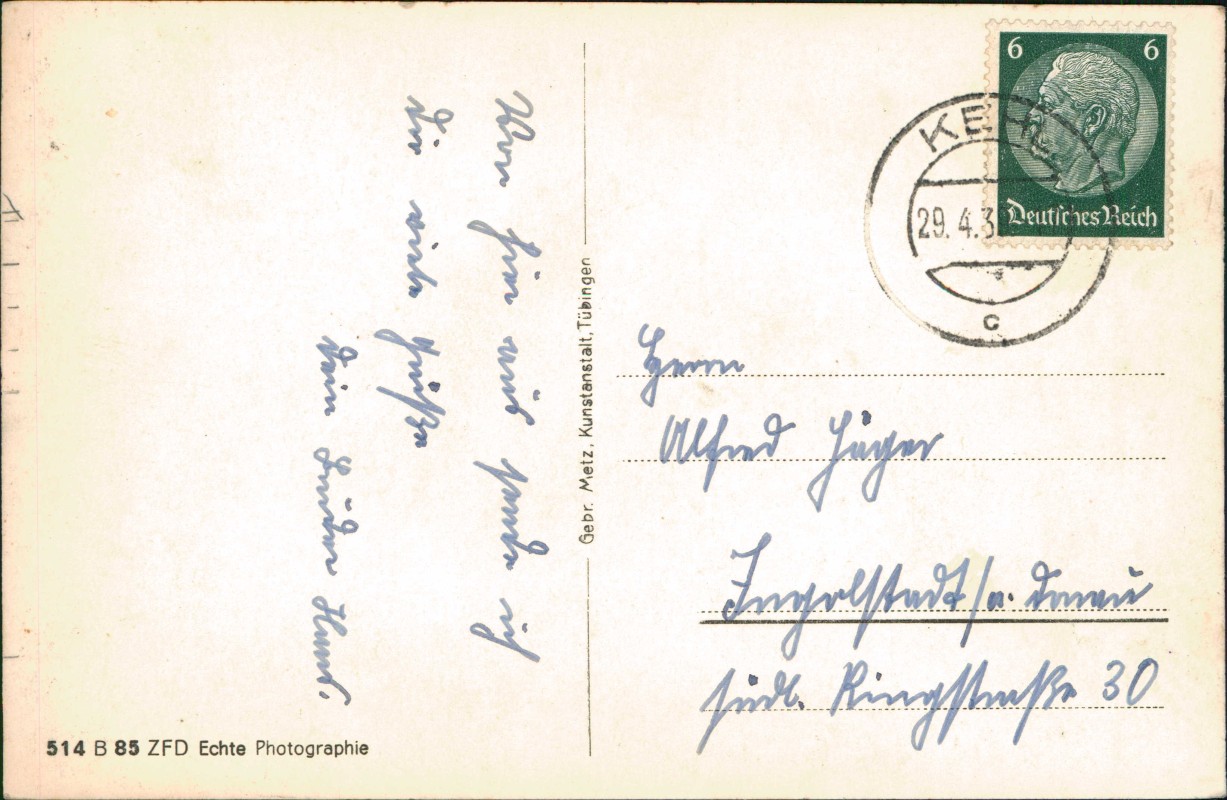 Von hier aus sende ich
dir viele Grüße
Dein Bruder Hans.
Gebr. Metz, Kunstanstalt, Tübingen
514 B 85 ZFD Echte Photographie
6 6
Deutsches Reich
KEHL
29. 4. 3
c
Herrn
Alfred Jäger
Ingolstadt/a. Donau
südl. Ringstraße 30